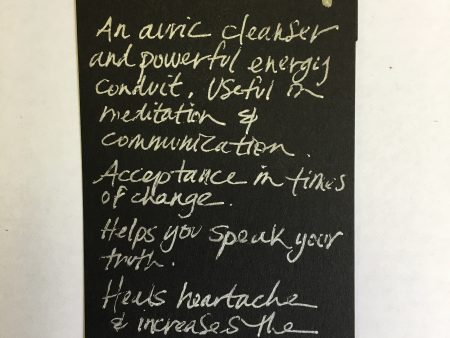 An auric cleanser
and powerful energy
conduit. Useful in
meditation &
communization.
Acceptance in times
of change.
Helps you speak your
truth.
Heals heartache
& increases the